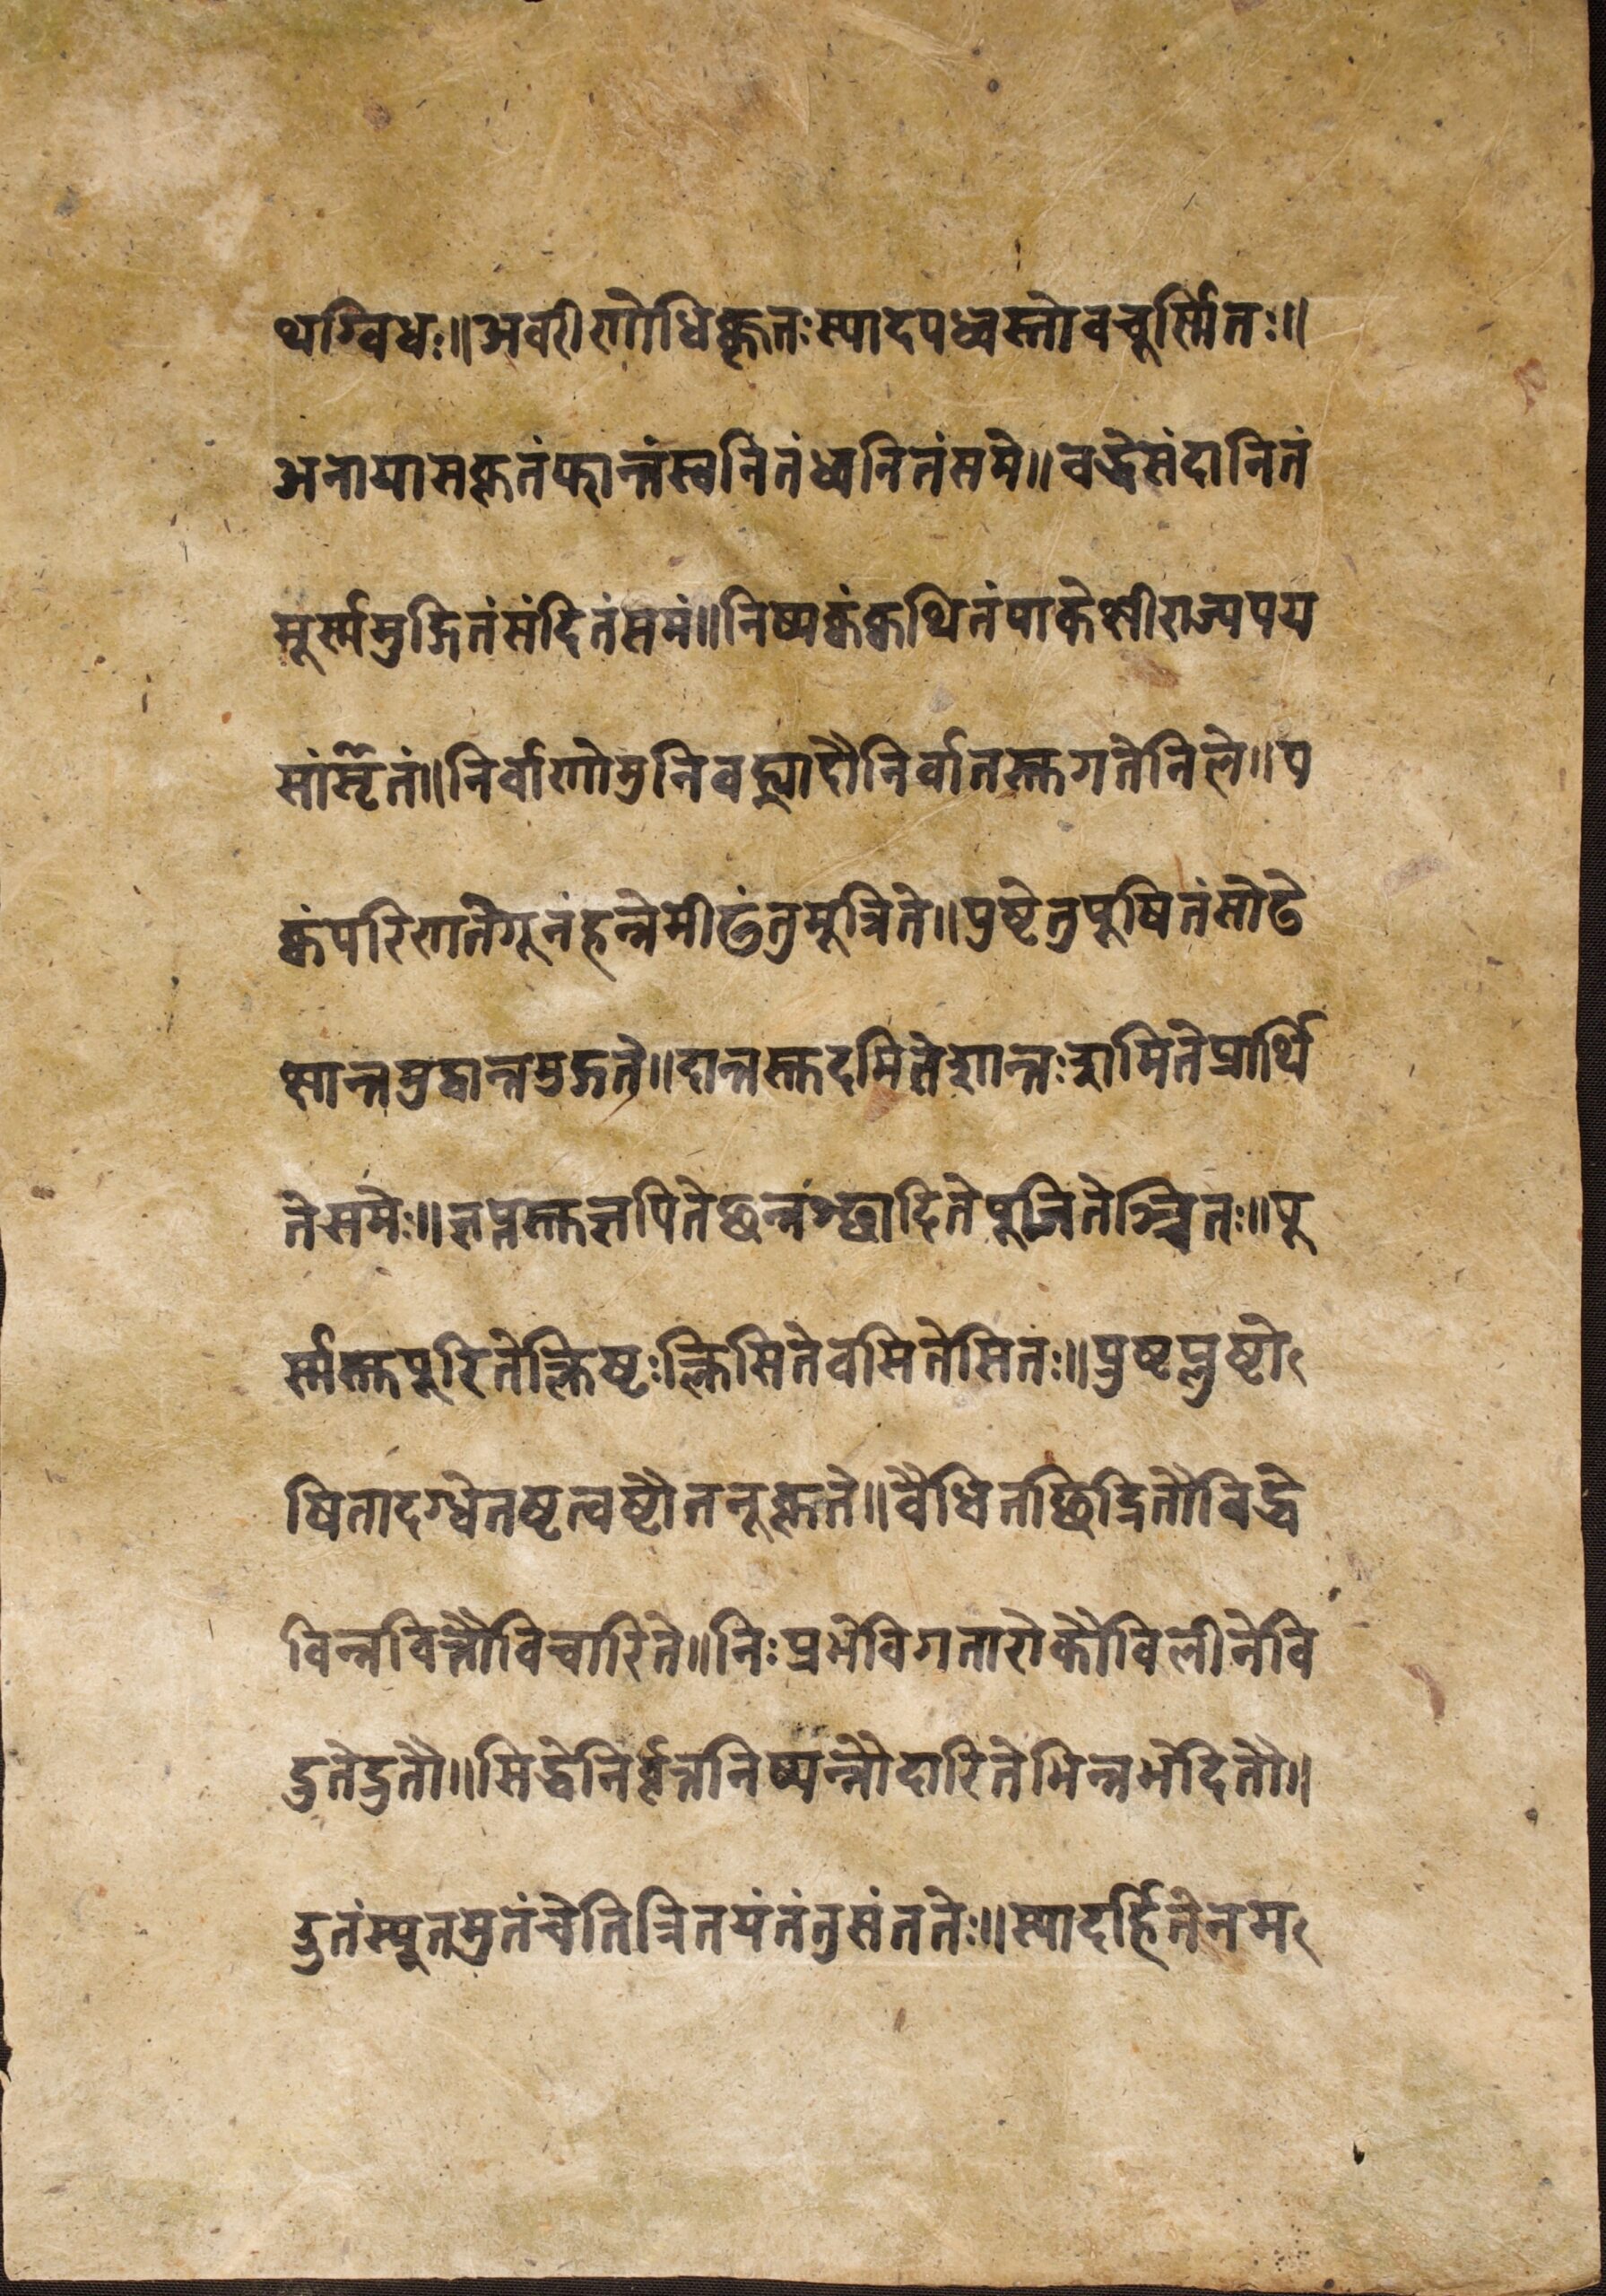 थग्विधः॥अवरीणोधिक्कृतःस्यादपध्वस्तोवचूर्स्मितः॥
अनायासकृतंफान्तंस्वनितंध्वनितंसमे॥वद्धेसंदानितं
मूर्स्ममुज्ञितंसंदितंसमं॥निष्पक्वंक्वथितंपाकेक्षीराज्यपय
सांसृतं॥निर्वाणोमुनिवह्न्यादौनिर्वातस्तगतेनिले॥प
क्वंपरिणतेगूनंहन्नेमीढंतुमूत्रिते॥पुष्टेतुपूषितंसोढे
क्षान्तमुद्वान्तमुद्गते॥दान्तस्तदमितेशान्तःशमितेप्रार्थि
तेसमेः॥ज्ञप्नस्तज्ञपितेछन्नश्छादितेपूजितेञ्चितः॥पू
र्स्मस्तपूरितेक्लिष्टःक्लिसितेवसितेसितः॥प्रुष्टप्लुष्टो
षितादग्धेतष्टत्वष्टौतनूकृते॥वैधितछिद्रितौविद्धे
विन्नवित्तौविचारिते॥निःप्रभेविगतारोकौविलीनेवि
द्रुतेद्रुतौ॥सिद्धेनिर्वृत्तनिष्पन्नौदारितेभिन्नभेदितौ॥
उतंस्यूतमुतंचेतित्रितयंतंतुसंततेः॥स्यादर्हितेनम